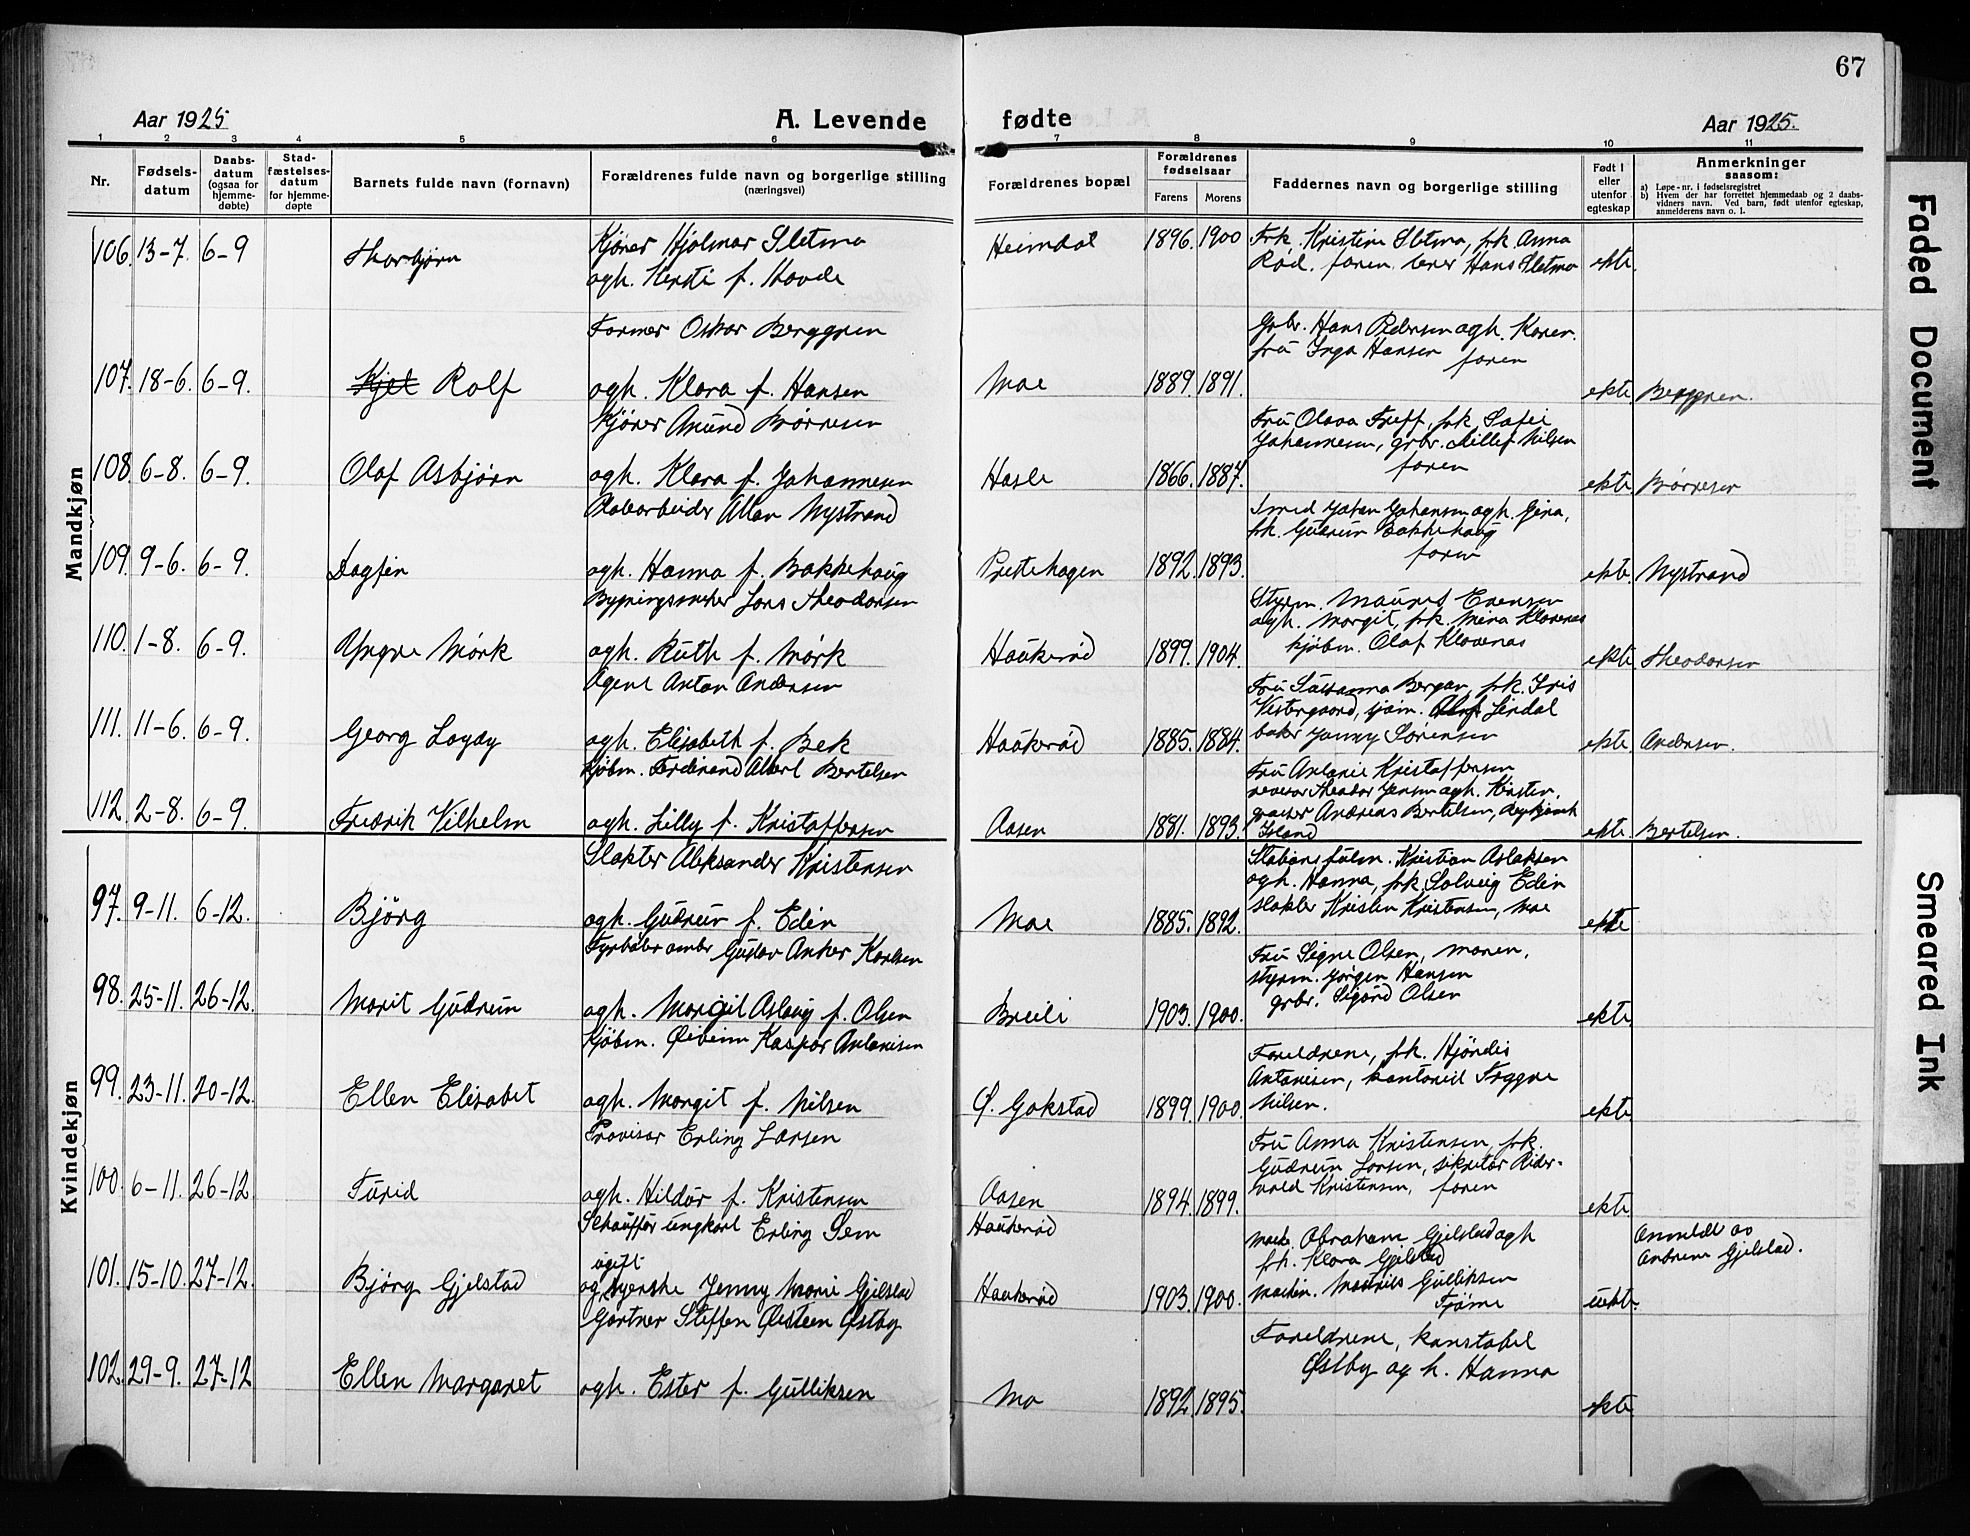 67
Aar 1925
A. Levende
fødte
Aar 1925.
1 2 3 4 5 6 7 8 9 10 11
Nr.
Fødsels-
datum
Daabs-
datum
(ogsaa for
hjemme-
døbte)
Stad-
fæstelses-
datum
for hjemme-
døpte
Barnets fulde navn (fornavn)
Forældrenes fulde navn og borgerlige stilling
(næringsvei)
Forældrenes bopæl
Forældrenes
fødselsaar
Farens
Morens
Faddernes navn og borgerlige stilling
Født i
eller
utenfor
egteskap
Anmerkninger
saasom:
a) Løpe-nr. i fødselsregistret
b) Hvem der har forrettet hjemmedaab og 2 daabs-
vidners navn. Ved barn, født utenfor egteskap,
anmelderens navn o. l.
Mandkjøn
106. 13-7. 6-9 Thorbjørn
Kjører Hjalmar Sletmo
ogh. Kersti f. Hovde
Heimdal 1896. 1900
Frk. Kristine Sletmo, frk. Anna
Rød. faren. lærer Hans Sletmo
ekte.
107. 18-6. 6-9. Kjel Rolf
Former Oskar Berggren
ogh. Klara f. Hansen
Moe 1889. 1891.
Grbr. Hans Pedersen ogh. Karen.
fru Inga Hansen faren
ekte. Berggren.
108. 6-8. 6-9. Olaf Asbjørn
Kjører Anund Børresen
ogh. Klara f. Johannesen
Hasle 1866. 1887.
Fru Olava Treff, frk. Sofie
Johannesen, grbr. Nilsen
faren
ekte Børresen
109. 9-6. 6-9. Dagfin
Allan Nystrand
ogh. Hanna f. Bakkehaug
Prestehagen 1892. 1893.
Smed Johan Johansen ogh. Gina,
frk. Gudrun Bakkehaug
faren
ekte Nystrand
110. 1-8. 6-9. Yngve Mørk
Theodorsen
ogh. Ruth f. Mørk
Haukerød 1899. 1904.
Styrm. Evensen
ogh. Margit, frk. Mina Klavenes
kjøbm. Olaf Klavenes
ekte. Theodorsen
111. 11-6. 6-9. Georg
Agent Anton Andersen
ogh. Elisabeth f. Bek
Haukerød 1885. 1884.
Fru Susanna Bergan, frk. Iris
Vestergaard, sjøm. Lindal
baker Jonny Sørensen
ekte. Andersen.
112. 2-8. 6-9. Fredrik Vilhelm
Kjøbm. Ferdinand Albert Bertelsen
ogh. Lilly f. Kristoffersen
Aasen 1881. 1893.
Fru Antonie Kristoffersen
revisor Theodor Jensen ogh. Kirsten,
Andreas Bertelsen, Reykjavik
Island
ekte. Bertelsen.
Kvindekjøn
97. 9-11. 6-12. Bjørg
Slakter Aleksander Kristensen
ogh. Gudrun f. Edin
Moe 1885. 1892.
Kristian Aslaksen
ogh. Hanna, frk. Solveig Edin
slakter Kristen Kristensen, Moe
ekte
98. 25-11. 26-12. Marit Gudrun
Gustav Anker Karlsen
ogh. Margit Aslaug f. Olsen
Breili 1903. 1900.
Fru Signe Olsen, moren,
styrm. Jørgen Hansen
grbr. Sigurd Olsen
ekte.
99. 23-11. 20-12. Ellen Elisabet
Kjøbm. Øivinn Kaspar Antonisen
ogh. Margit f. Nilsen
Ø. Gokstad 1899. 1900.
Foreldrene, frk. Hjørdis
Antonisen, kontorist Trygve
Nilsen.
ekte.
100. 6-11. 26-12. Turid
Provisor Erling Larsen
ogh. Hildur f. Kristensen
Aasen 1894. 1899.
Fru Anna Kristensen, frk.
Gudrun Larsen, sekretær Rider-
vold Kristensen, faren
ekte.
101. 15-10. 27-12. Bjørg Gjelstad
Schauffør ungkarl Erling Sem
ugift
og syerske Jenny Marie Gjelstad
Haukerød
Haukerød 1903. 1900.
Abraham Gjelstad ogh
frk. Klara Gjelstad
maskin. Maurits Gulliksen
Tjøme
uekte.
Anmeldt av
Andrine Gjelstad.
102. 29-9. 27-12 Ellen Margaret
Gartner Steffen Øisteen Østby
ogh. Ester f. Gulliksen
Mo 1892. 1895.
Foreldrene, konstabel
Østby og h. Hanna
ekte
Faded Document
Smeared Ink